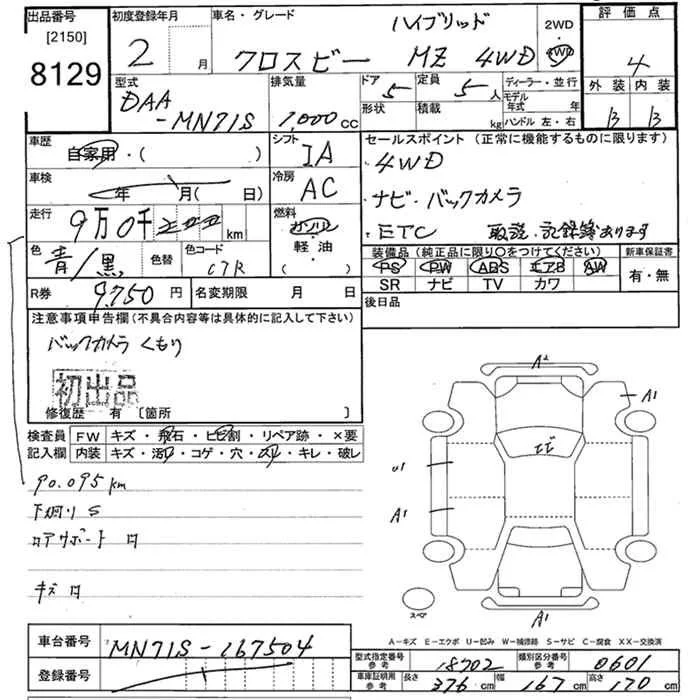 出品番号
[2150]
8129
初度登録年月
2 月
車名・グレード
ハイブリッド
クロスビー MZ 4WD
2WD
4WD
評価点
4
外装 内装
B B
型式
DAA
-MN71S
排気量
1,000 cc
ドア 5
形状
定員 5 人
積載 kg
ディーラー・並行
モデル年式 年
ハンドル 左・右
車歴
自家用・( )
シフト
IA
車検
年 月( 日)
冷房
AC
走行
9万0千 km
燃料
ガソリン
軽・油
( )
色
青/黒
色替
色コード
C7R
R券
9,750 円
名変期限 月 日
セールスポイント (正常に機能するものに限ります)
4WD
ナビ・バックカメラ
ETC 取説・記録簿あります
装備品 (純正品に限り○をつけてください)
PS PW ABS エアB AW
SR ナビ TV カワ
新車保証書
有・無
後日品
注意事項申告欄 (不具合内容等は具体的に記入して下さい)
バックカメラ くもり
初出品
修復歴 有 〔箇所 〕
検査員
記入欄
FW キズ・飛石・ヒビ割・リペア跡・×要
内装 キズ・汚れ・コゲ・穴・スリ・キレ・破レ
90.095km
下廻り S
コアサポート ロ
キズ ロ
A2
A1
エビ
U1
A1
A1
スペア
A-キズ E-エクボ U-凹み W-補修跡 S-サビ C-腐食 XX-交換済
車台番号
MN71S-167504
登録番号
型式指定番号
参考
18702
類別区分番号
参考
0601
車庫証明用
参考
長さ 376 cm
幅 167 cm
高さ 170 cm